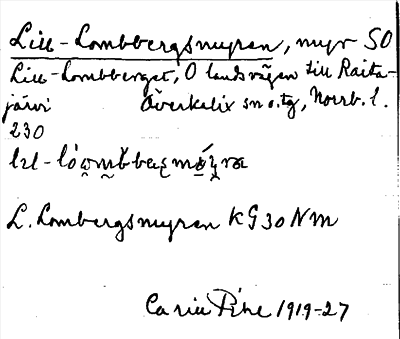 Lill-Lombbergsmyren, myr SO
Lill-Lombberget, O landsvägen till Raita-
järvi Överkalix sn o. tg, Norrb. l.
230
L. Lombergsmyren KG30NM
Carin Pihl 1919-27